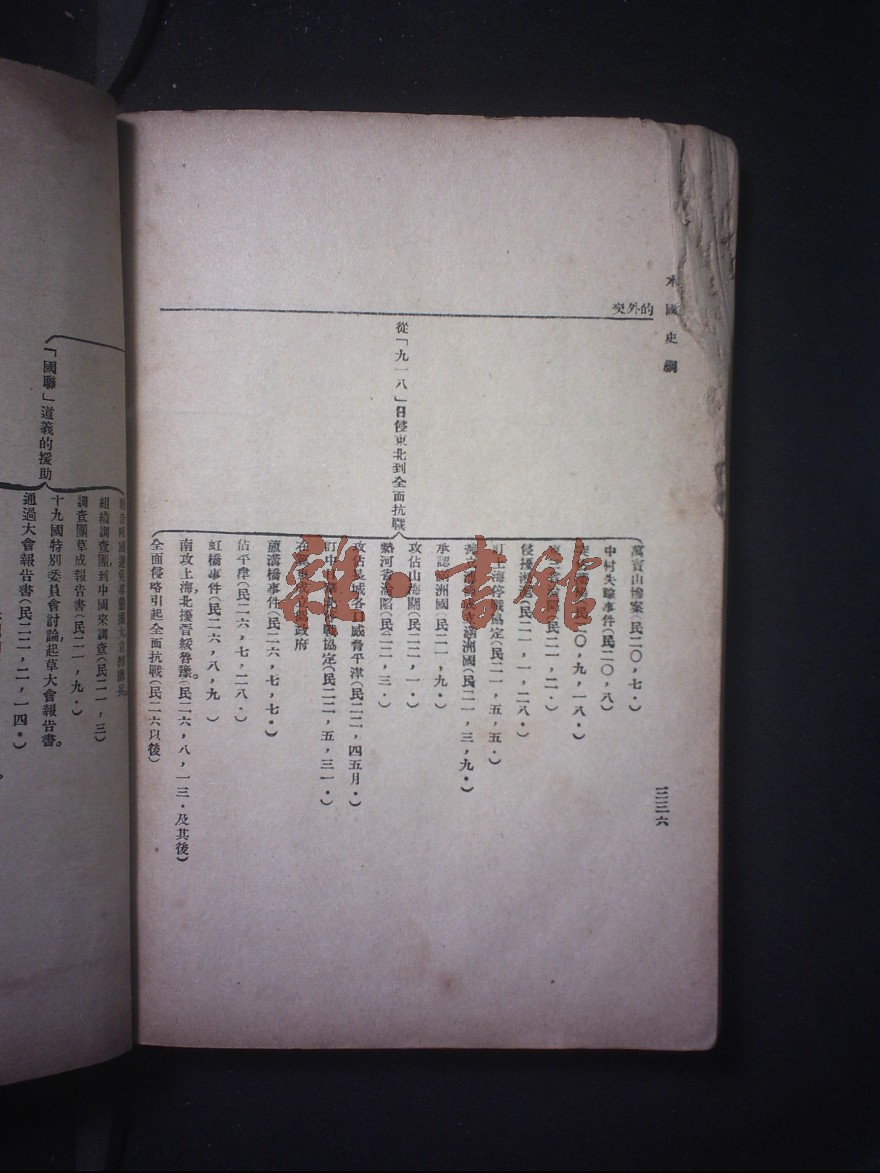 本國史綱
三三六
的外交
從「九一八」日侵東北到全面抗戰
萬寶山慘案(民二〇,七.)
中村失踪事件(民二〇,八)
民二〇,九,一八.)
民二一,二.)
侵擾 (民二一,一,二八.)
訂上海停戰協定(民二一,五,五.)
成立滿洲國(民二一,三,九.)
承認 洲國(民二一,九.)
攻佔山海關(民二二,一.)
熱河省淪陷(民二二,三.)
攻佔長城各口威脅平津(民二二,四五月.)
訂中日 停戰協定(民二二,五,三一.)
在 成立 政府
蘆溝橋事件(民二六,七,七.)
佔平津(民二六,七,二八.)
虹橋事件(民二六,八,九)
南攻上海,北擾晉綏魯豫。(民二六,八,一三.及其後)
全面侵略引起全面抗戰(民二六以後)
「國聯」道義的援助
組織調查團,到中國來調查(民二一,三)
調查團草成報告書(民二一,九.)
十九國特別委員會討論,起草大會報告書。
通過大會報告書(民二二,二,一四.)
雜·書館